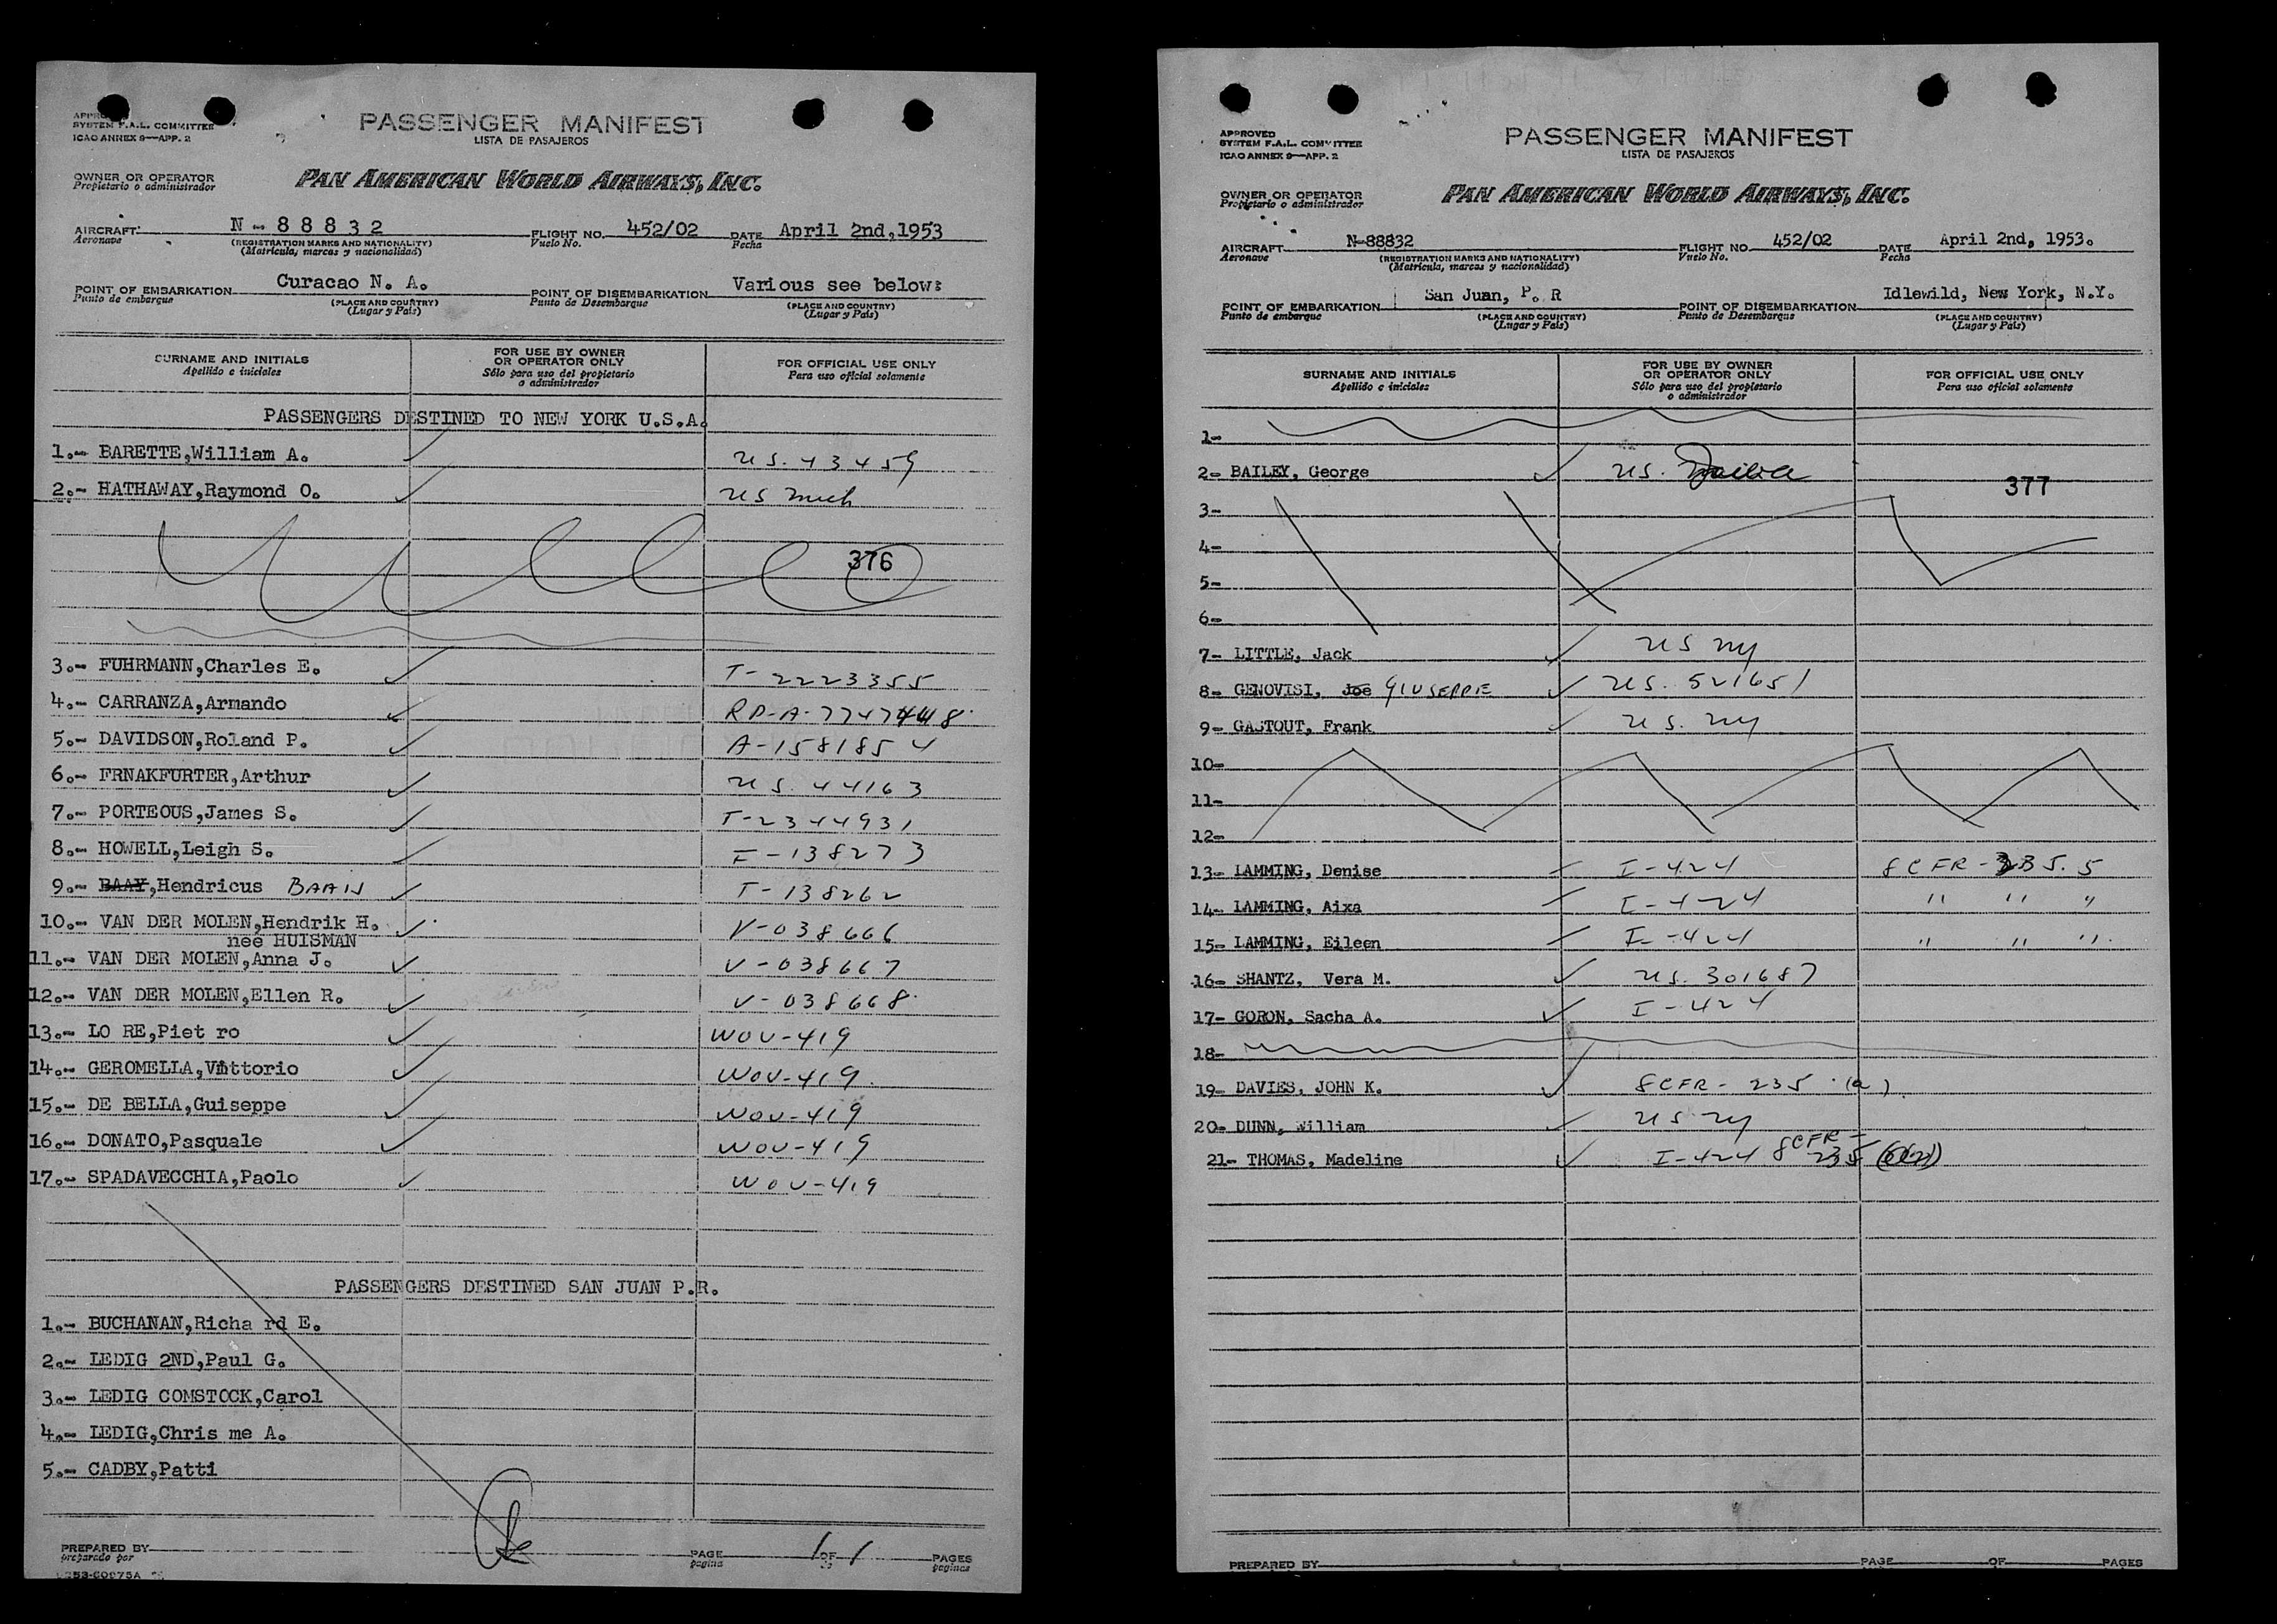 APPRO
SYSTEM F.A.L. COMMITTEE
ICAO ANNEX 9—APP. 2
PASSENGER MANIFEST
LISTA DE PASAJEROS
OWNER OR OPERATOR
Propietario o administrador
PAN AMERICAN WORLD AIRWAYS, INC.
AIRCRAFT N-88832 FLIGHT NO. 452/02 DATE April 2nd,1953
Aeronave (REGISTRATION MARKS AND NATIONALITY) Vuelo No. Fecha
(Matricula, marcas y nacionalidad)
POINT OF EMBARKATION Curacao N. A. POINT OF DISEMBARKATION Various see below:
Punto de embarque (PLACE AND COUNTRY) Punto de Desembarque (PLACE AND COUNTRY)
(Lugar y País) (Lugar y País)
SURNAME AND INITIALS FOR USE BY OWNER OR OPERATOR ONLY FOR OFFICIAL USE ONLY
Apellido e iniciales Sólo para uso del propietario o administrador Para uso oficial solamente
PASSENGERS DESTINED TO NEW YORK U.S.A.
1.- BARETTE,William A. US. 43459
2.- HATHAWAY,Raymond O. US Mich
376
3.- FUHRMANN,Charles E. T-2223355
4.- CARRANZA,Armando RP-A-7747448
5.- DAVIDSON,Roland P. A-1581854
6.- FRNAKFURTER,Arthur US. 44163
7.- PORTEOUS,James S. T-2344931
8.- HOWELL,Leigh S. I-138273
9.- BAAY,Hendricus BAAIJ T-138262
10.- VAN DER MOLEN,Hendrik H. V-038666
nee HUISMAN
11.- VAN DER MOLEN,Anna J. V-038667
12.- VAN DER MOLEN,Ellen R. V-038668
13.- LO RE,Piet ro WOV-419
14.- GEROMELLA,Vittorio WOV-419
15.- DE BELLA,Guiseppe WOV-419
16.- DONATO,Pasquale WOV-419
17.- SPADAVECCHIA,Paolo WOV-419
PASSENGERS DESTINED SAN JUAN P.R.
1.- BUCHANAN,Richa rd E.
2.- LEDIG 2ND,Paul G.
3.- LEDIG COMSTOCK,Carol
4.- LEDIG,Chris me A.
5.- CADBY,Patti
PREPARED BY PAGE 1 OF 1 PAGES
preparado por pagina paginas
APPROVED
SYSTEM F.A.L. COMMITTEE
ICAO ANNEX 9—APP. 2
PASSENGER MANIFEST
LISTA DE PASAJEROS
OWNER OR OPERATOR
Propietario o administrador
PAN AMERICAN WORLD AIRWAYS, INC.
AIRCRAFT N-88832 FLIGHT NO. 452/02 DATE April 2nd, 1953.
Aeronave (REGISTRATION MARKS AND NATIONALITY) Vuelo No. Fecha
(Matricula, marcas y nacionalidad)
POINT OF EMBARKATION San Juan, P. R POINT OF DISEMBARKATION Idlewild, New York, N.Y.
Punto de embarque (PLACE AND COUNTRY) Punto de Desembarque (PLACE AND COUNTRY)
(Lugar y País) (Lugar y País)
SURNAME AND INITIALS FOR USE BY OWNER OR OPERATOR ONLY FOR OFFICIAL USE ONLY
Apellido e iniciales Sólo para uso del propietario o administrador Para uso oficial solamente
1-
2- BAILEY, George US.
377
3-
4-
5-
6-
7- LITTLE, Jack US NY
8- GENOVISI, Joe GIUSEPPIE US. 521651
9- GASTOUT, Frank US. NY
10-
11-
12-
13- LAMMING, Denise I-424 8CFR-235.5
14- LAMMING, Aixa I-424 " " "
15- LAMMING, Eileen I-424 " " "
16- SHANTZ, Vera M. US. 301687
17- GORON, Sacha A. I-424
18-
19- DAVIES, JOHN K. 8CFR-235.(a)
20- DUNN, William US NY
21- THOMAS, Madeline I-424 8CFR-235
PREPARED BY PAGE OF PAGES